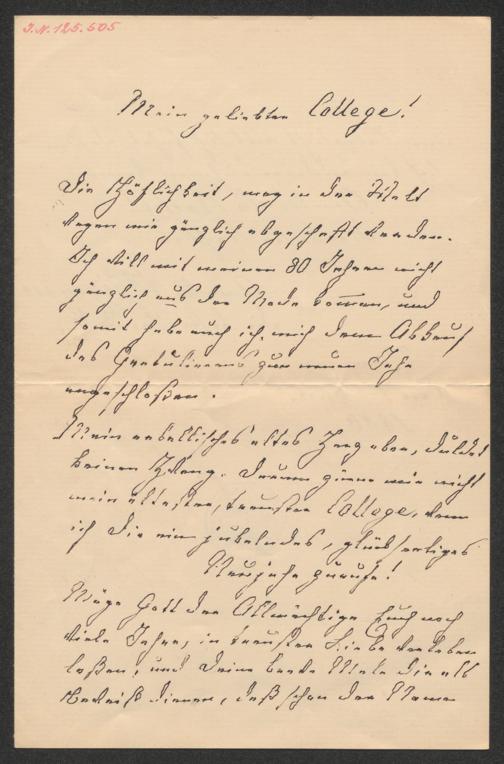 J.N. 125.505
Mein geliebter College!
Die Höflichkeit, mag in der Welt
wegen mir gänzlich abgeschafft werden.
Ich will mit meinen 80 Jahren nicht
gänzlich aus der Mode kommen, und
somit habe auch ich, mich dem Abkauf
des Gratulierens zum neuen Jahr
angeschloßen.
Mein rebellisches altes Herz aber, duldet
keinen Zwang. Darum zürne mir nicht
mein ältester, treuster College, wenn
ich Dir ein jubelndes, glückseeliges
Neujahr zurufe!
Möge Gott der Allmächtige Euch noch
viele Jahre, in treuster Liebe verleben
laßen, und Deine die als
Beweiß dienen, daß schon der Name